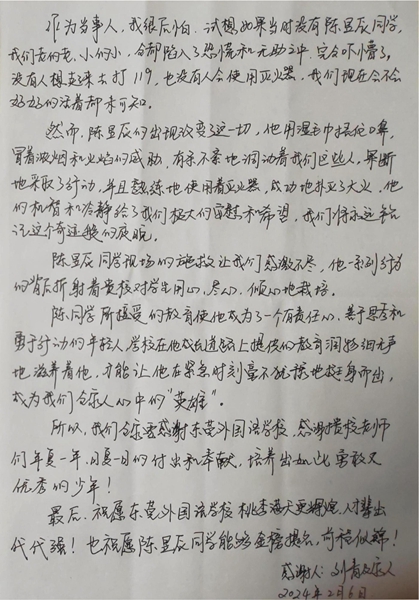 作为当事人，我很后怕。试想如果当时没有陈昱辰同学，
我们老的老、小的小，全都陷入了恐慌和无助之中，完全吓懵了，
没有人想起来去打119，也没有人会使用灭火器，我们现在会不会
好好的活着都未可知。
然而，陈昱辰的出现改变了这一切，他用湿毛巾捂住口鼻，
冒着浓烟和火焰的威胁，有条不紊地调动着我们这些人，果断
地采取了行动，并且熟练地使用着灭火器，成功地扑灭了大火，他
的机智和冷静给了我们极大的安慰和希望，我们将永远铭
记这个奇迹般的夜晚。
陈昱辰同学现场的施救让我们感激不尽，他一系列行为
的背后折射着贵校对学生用心、尽心、倾心地栽培。
陈同学所接受的教育使他成为了一个有责任心、善于思考和
勇于行动的年轻人，学校在他成长道路上提供的教育润物细无声
地滋养着他，才能让他在紧急时刻毫不犹豫地挺身而出，
成为我们全家人心中的“英雄”。
所以，我们全家要感谢东莞外国语学校，感谢贵校老师
们年复一年、日复一日的付出和奉献，培养出如此勇敢又
优秀的少年！
最后，祝愿东莞外国语学校桃李满天更辉煌，人才辈出
代代强！也祝愿陈昱辰同学能够金榜提名，前程似锦！
感谢人：刘青及家人
2024年2月6日